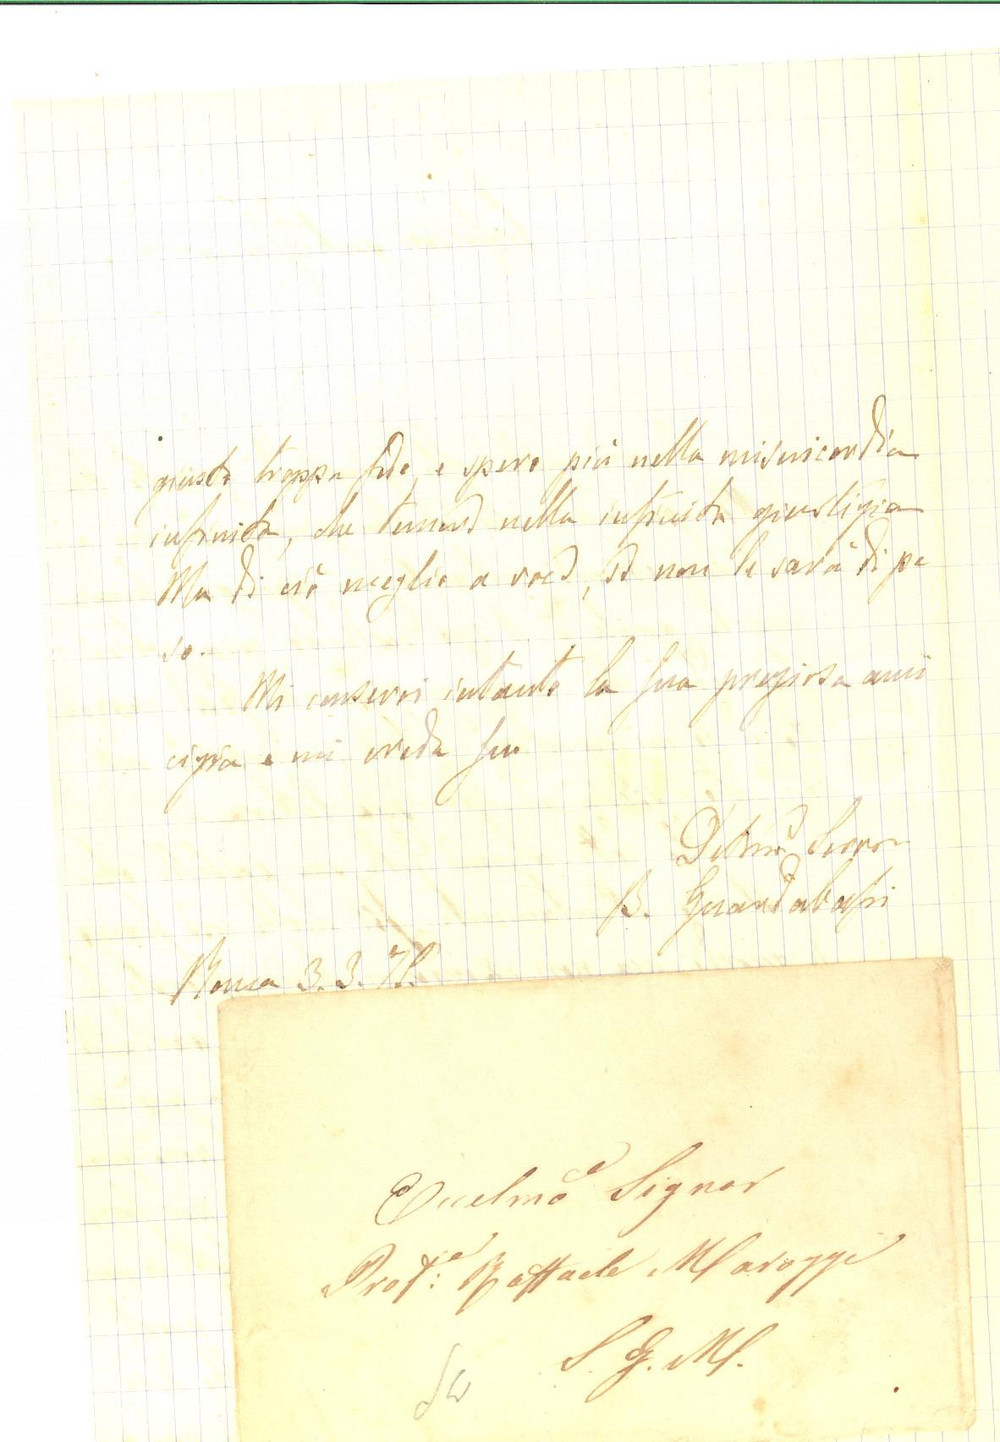 questo troppa fede, e spero più nella misericordia
infinita, che temere nella infinita giustizia
Ma di ciò meglio a voce, se non le sarà di pe
so.
Mi conservi intanto la sua preziosa ami
cizia e mi creda suo
Devmo Servo
B. Guardabassi
Roma 3. 3. 71.
Eccelmo Signor
Profe: Raffaele Maroggi
S. G. M.